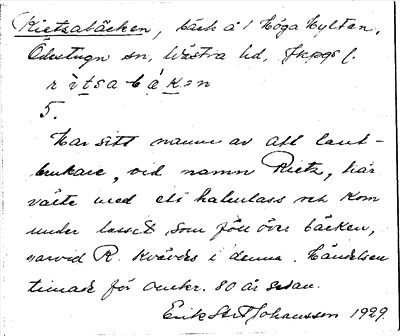 Rietzabäcken, bäck å 1 Höga Hyltan,
Ödestugu sn, Västra hd, Jkpgs l.
r i t s a b ä k e n
5.
Har sitt namn av att lant-
brukare, vid namn Rietz, här
välte med ett halmlass och kom
under lasset som föll över bäcken,
varvid R. kvävdes i denna. Händelsen
timade för omkr. 80 år sedan.
Erik Johansson 1929